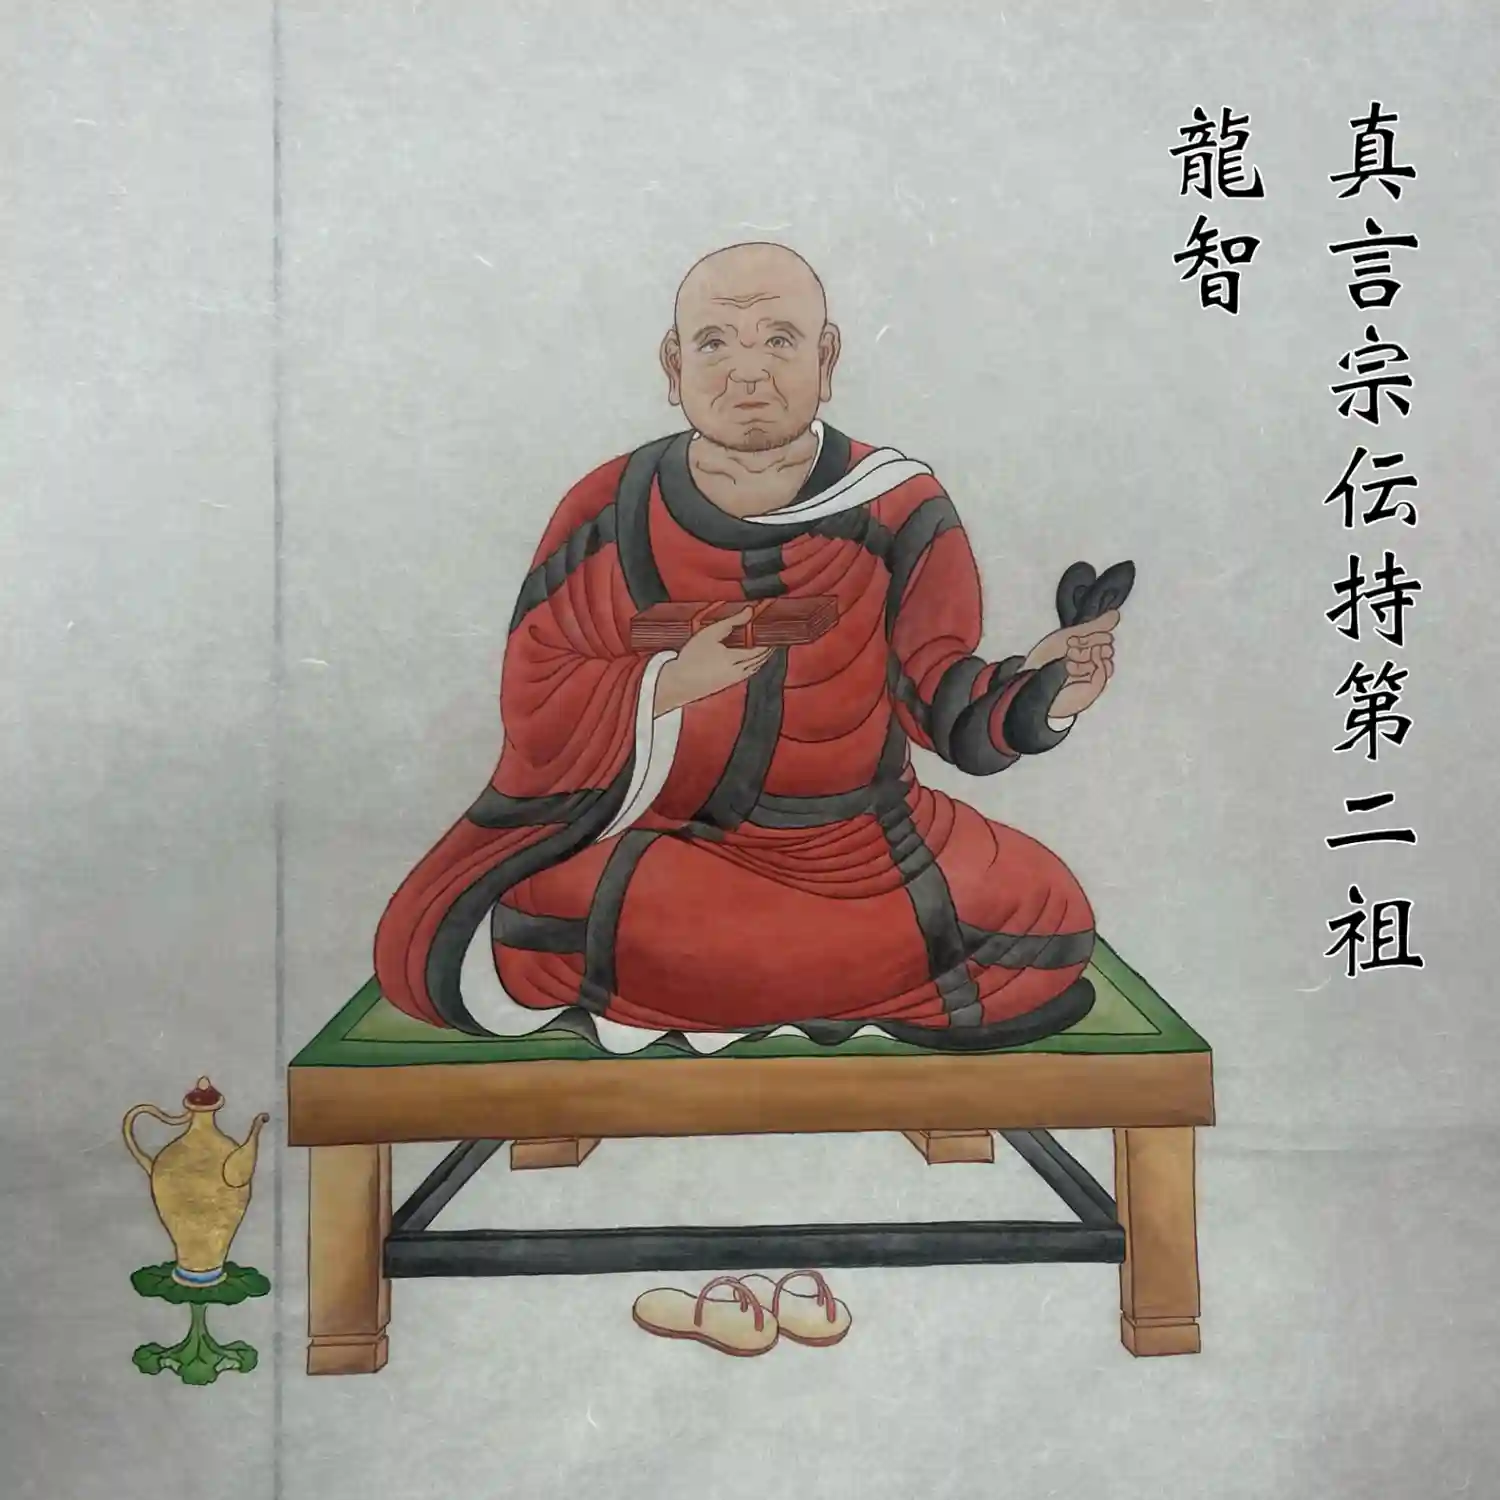 真言宗伝持第二祖
龍智